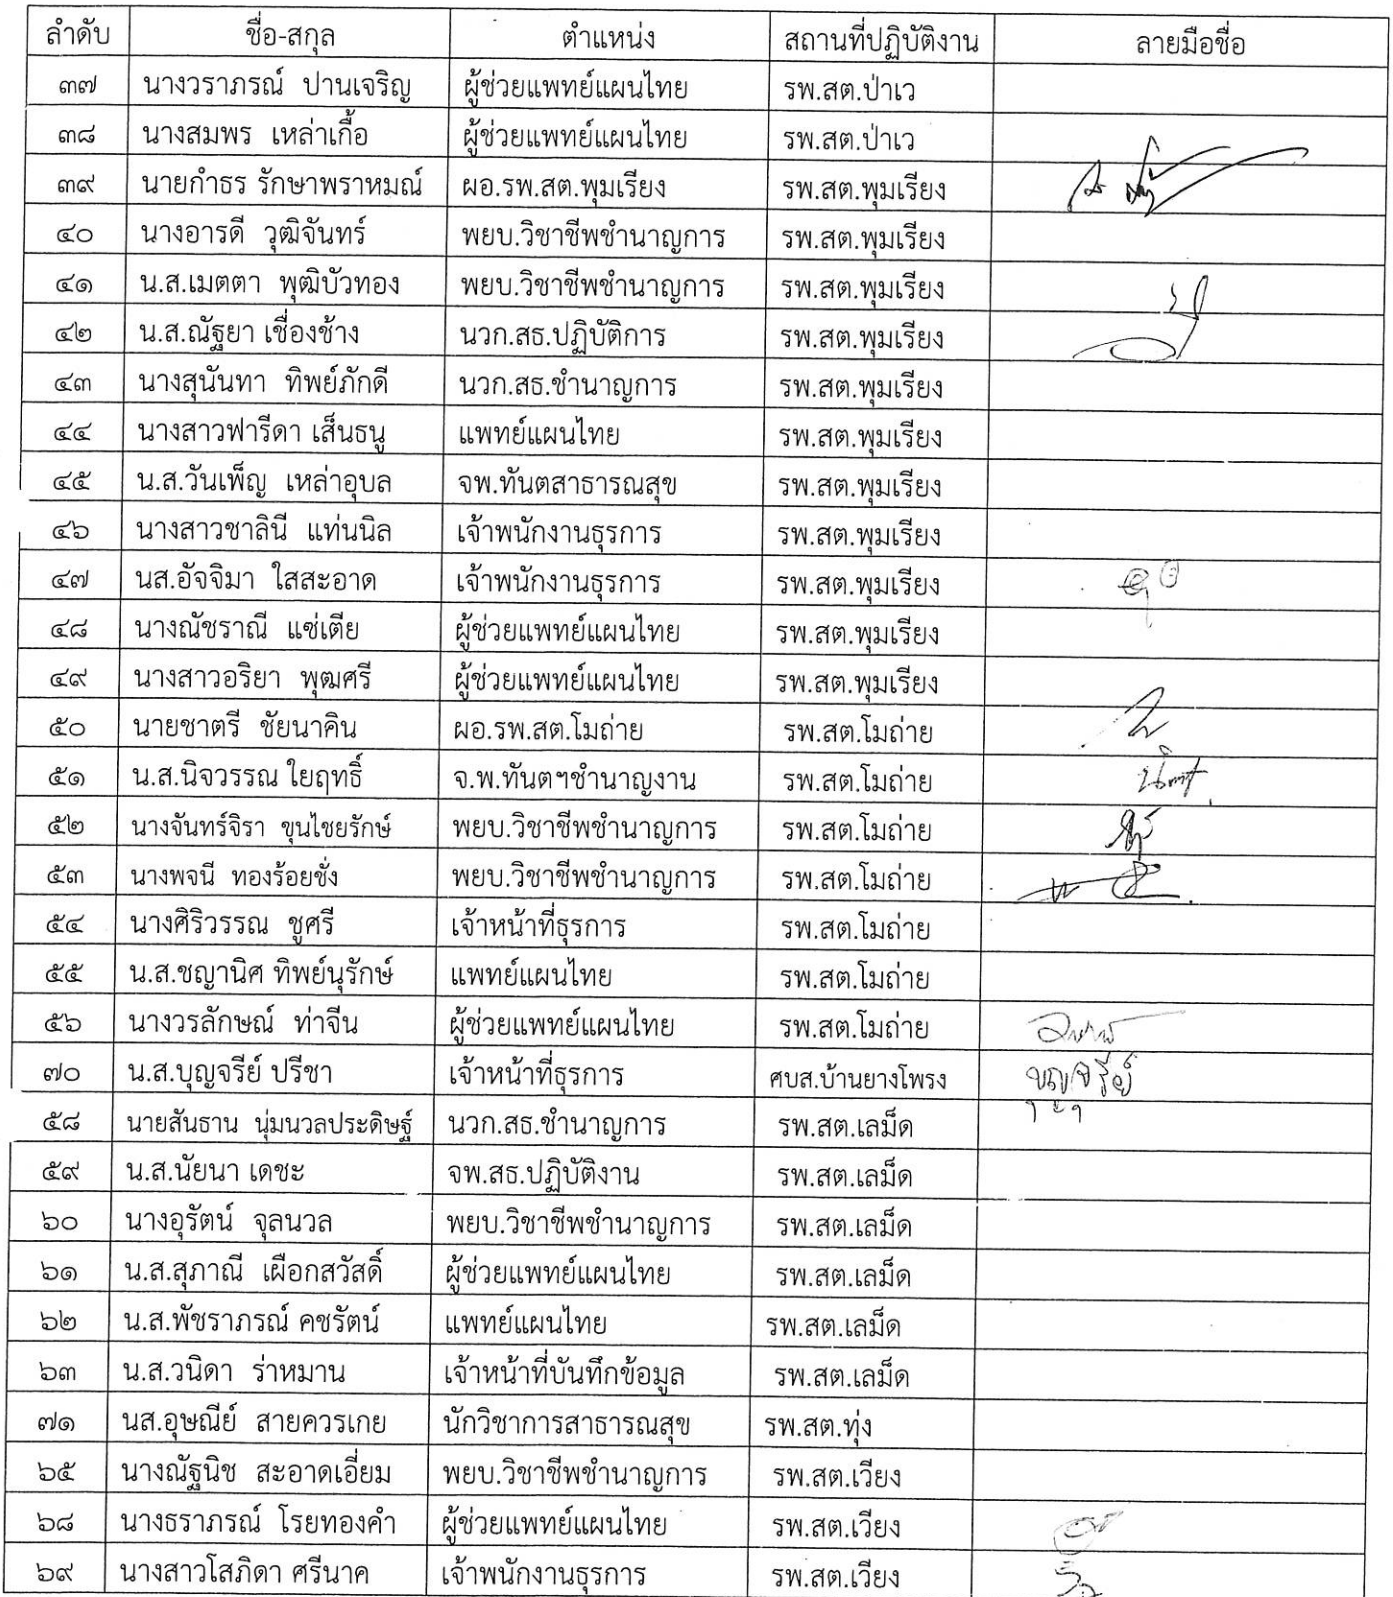 ลำดับ ชื่อ-สกุล ตำแหน่ง สถานที่ปฏิบัติงาน ลายมือชื่อ
๓๗ นางวราภรณ์ ปานเจริญ ผู้ช่วยแพทย์แผนไทย รพ.สต.ป่าเว
๓๘ นางสมพร เหล่าเกื้อ ผู้ช่วยแพทย์แผนไทย รพ.สต.ป่าเว
๓๙ นายกำธร รักษาพราหมณ์ ผอ.รพ.สต.พุมเรียง รพ.สต.พุมเรียง
๔๐ นางอารดี วุฒิจันทร์ พยบ.วิชาชีพชำนาญการ รพ.สต.พุมเรียง
๔๑ น.ส.เมตตา พุฒิบัวทอง พยบ.วิชาชีพชำนาญการ รพ.สต.พุมเรียง
๔๒ น.ส.ณัฐยา เชื่องช้าง นวก.สธ.ปฏิบัติการ รพ.สต.พุมเรียง
๔๓ นางสุนันทา ทิพย์ภักดี นวก.สธ.ชำนาญการ รพ.สต.พุมเรียง
๔๔ นางสาวฟารีดา เส็นธนู แพทย์แผนไทย รพ.สต.พุมเรียง
๔๕ น.ส.วันเพ็ญ เหล่าอุบล จพ.ทันตสาธารณสุข รพ.สต.พุมเรียง
๔๖ นางสาวชาลินี แท่นนิล เจ้าพนักงานธุรการ รพ.สต.พุมเรียง
๔๗ นส.อัจจิมา ใสสะอาด เจ้าพนักงานธุรการ รพ.สต.พุมเรียง
๔๘ นางณัชราณี แซ่เตีย ผู้ช่วยแพทย์แผนไทย รพ.สต.พุมเรียง
๔๙ นางสาวอริยา พุฒศรี ผู้ช่วยแพทย์แผนไทย รพ.สต.พุมเรียง
๕๐ นายชาตรี ชัยนาคิน ผอ.รพ.สต.โมถ่าย รพ.สต.โมถ่าย
๕๑ น.ส.นิจวรรณ ใยฤทธิ์ จ.พ.ทันตฯชำนาญงาน รพ.สต.โมถ่าย
๕๒ นางจันทร์จิรา ขุนไชยรักษ์ พยบ.วิชาชีพชำนาญการ รพ.สต.โมถ่าย
๕๓ นางพจนี ทองร้อยชั่ง พยบ.วิชาชีพชำนาญการ รพ.สต.โมถ่าย
๕๔ นางศิริวรรณ ชูศรี เจ้าหน้าที่ธุรการ รพ.สต.โมถ่าย
๕๕ น.ส.ชญานิศ ทิพย์นุรักษ์ แพทย์แผนไทย รพ.สต.โมถ่าย
๕๖ นางวรลักษณ์ ท่าจีน ผู้ช่วยแพทย์แผนไทย รพ.สต.โมถ่าย
๗๐ น.ส.บุญจรีย์ ปรีชา เจ้าหน้าที่ธุรการ ศบส.บ้านยางโพรง บุญจรีย์
๕๘ นายสันธาน นุ่มนวลประดิษฐ์ นวก.สธ.ชำนาญการ รพ.สต.เลม็ด
๕๙ น.ส.นัยนา เดชะ จพ.สธ.ปฏิบัติงาน รพ.สต.เลม็ด
๖๐ นางอุรัตน์ จุลนวล พยบ.วิชาชีพชำนาญการ รพ.สต.เลม็ด
๖๑ น.ส.สุภาณี เผือกสวัสดิ์ ผู้ช่วยแพทย์แผนไทย รพ.สต.เลม็ด
๖๒ น.ส.พัชราภรณ์ คชรัตน์ แพทย์แผนไทย รพ.สต.เลม็ด
๖๓ น.ส.วนิดา ร่าหมาน เจ้าหน้าที่บันทึกข้อมูล รพ.สต.เลม็ด
๗๑ นส.อุษณีย์ สายควรเกย นักวิชาการสาธารณสุข รพ.สต.ทุ่ง
๖๕ นางณัฐนิช สะอาดเอี่ยม พยบ.วิชาชีพชำนาญการ รพ.สต.เวียง
๖๘ นางธราภรณ์ โรยทองคำ ผู้ช่วยแพทย์แผนไทย รพ.สต.เวียง
๖๙ นางสาวโสภิดา ศรีนาค เจ้าพนักงานธุรการ รพ.สต.เวียง